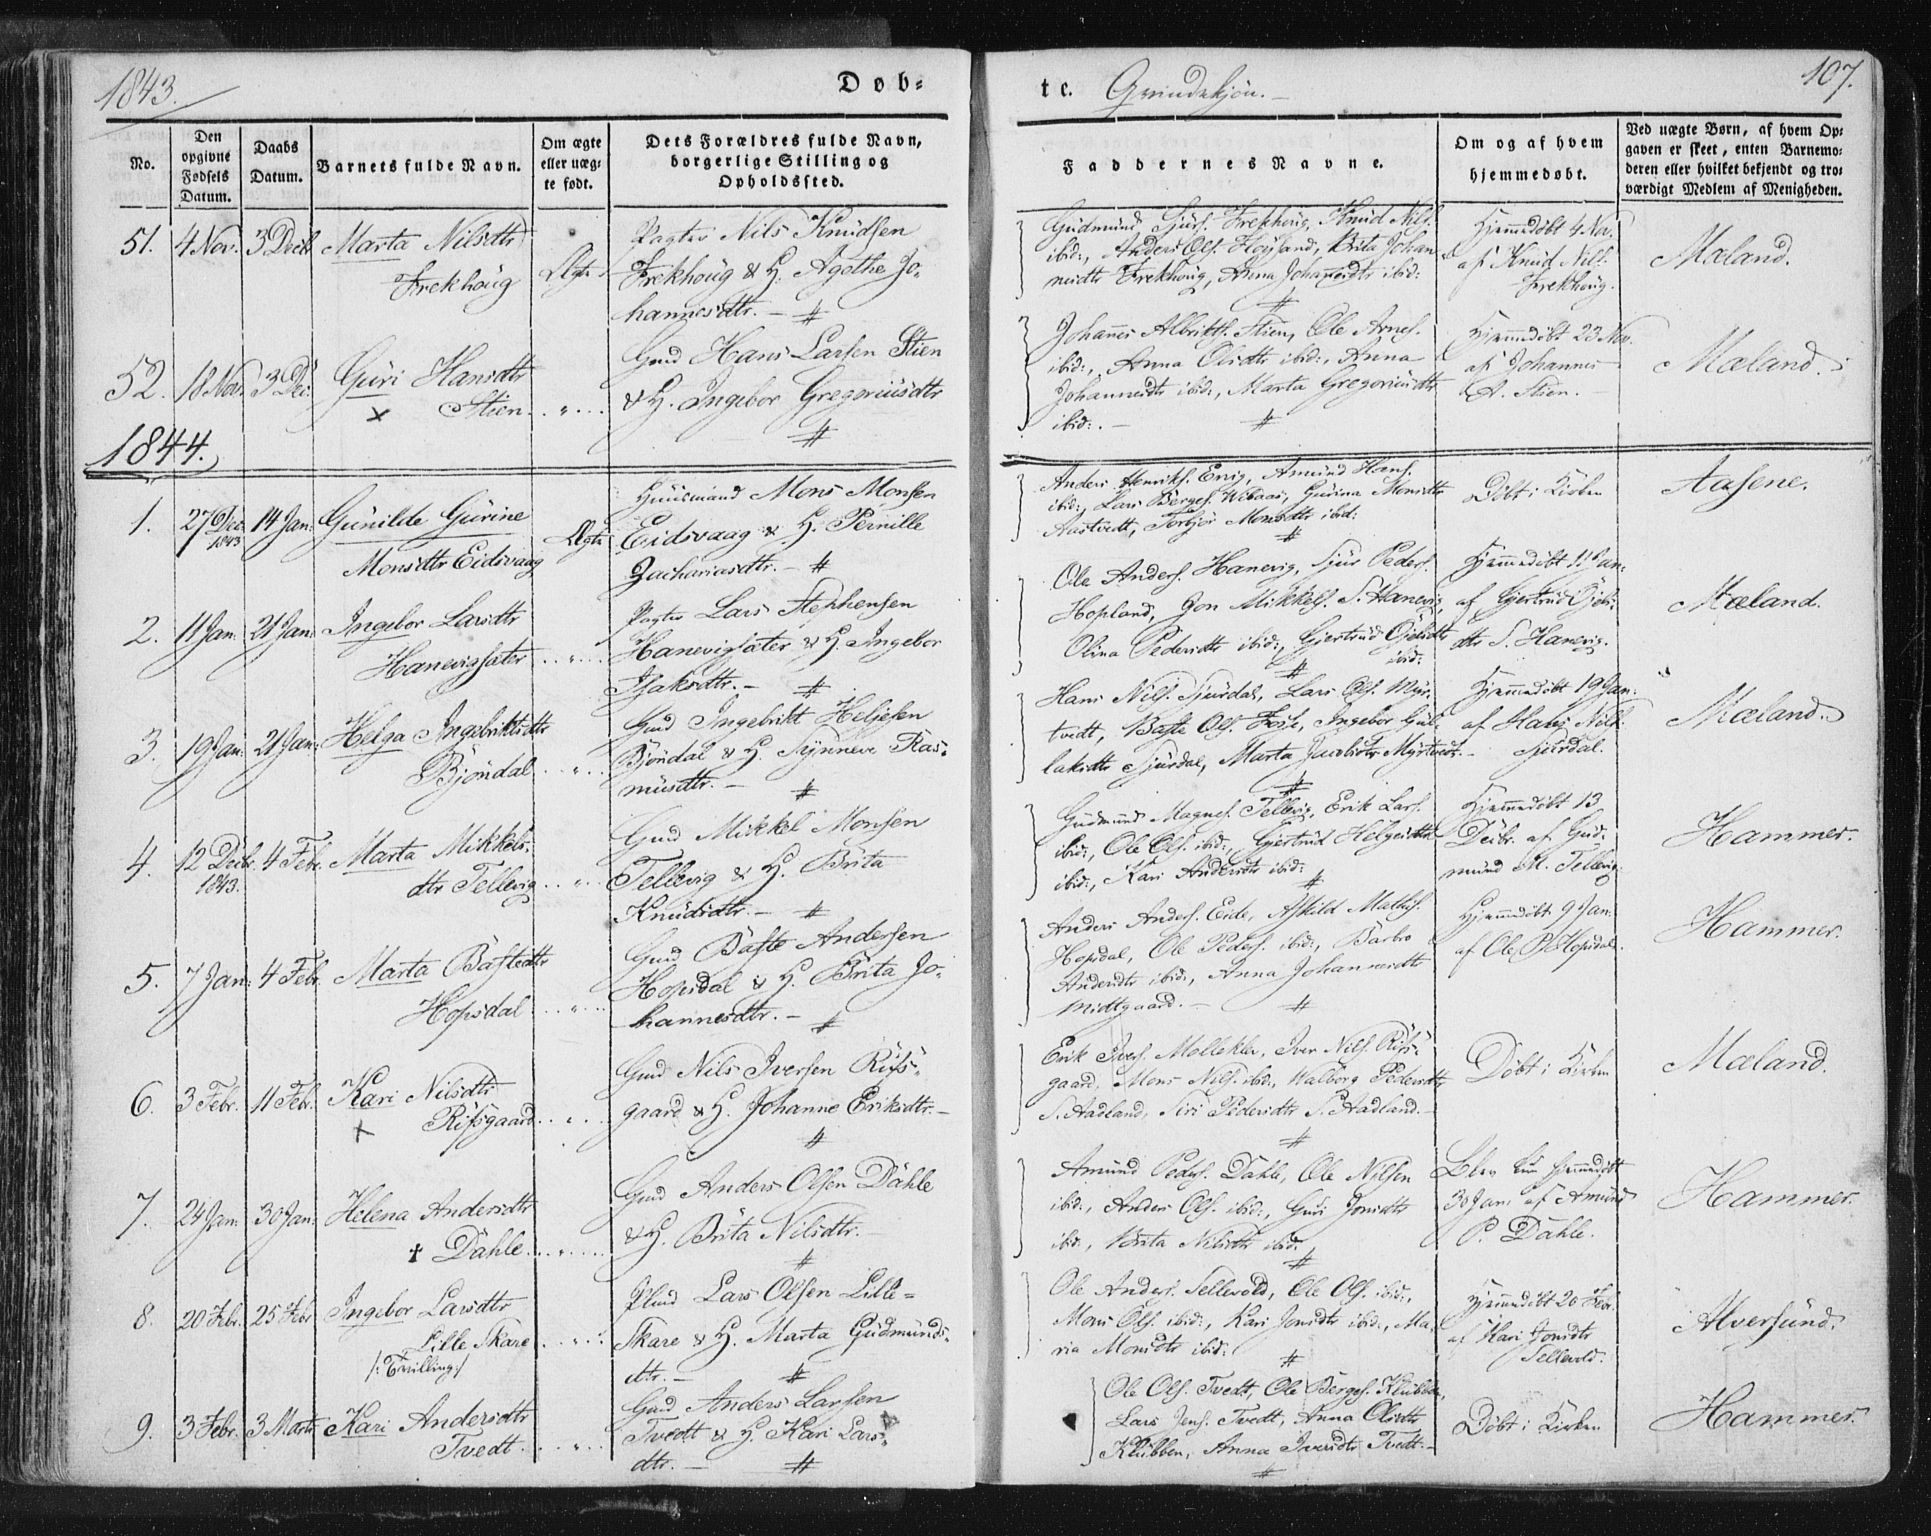 1843.
Døb-
te. Qvindekjön.
107.
No.
Den opgivne Fødsels Datum.
Daabs Datum.
Barnets fulde Navn.
Om ægte eller uægte født.
Dets Forældres fulde Navn, borgerlige Stilling og Opholdssted.
Faddernes Navne.
Om og af hvem hjemmedøbt.
Ved uægte Børn, af hvem Opgaven er skeet, enten Barnemoderen eller hvilket bekjendt og troværdigt Medlem af Menigheden.
51. 4 Nov. 3 Decb Marta Nilsdtr
Frekhoug
Ægte
Pagter Nils Knudsen
Frekhoug & H. Agothe Jo-
hannesdtr. —
Gudmund Sjurs. Frekhoug, Knud Nils.
ibid:, Anders Ols. Hoyland, Brita Johan-
nesdtr Frekhoug, Anna Johannesdtr ibid:
Hjemmedöbt 4 Nov.
af Knud Nils.
Frekhoug.
Mæland.
52. 18 Nov. 3 Dec: Guri Hansdtr
x Stien. . . „ . . .
Gmd Hans Larsen Stien
& H. Ingebor Gregoriusdtr
Johannes Albrikts. Stien, Ole Arnes.
ibid:, Anna Olsdtr ibid:, Anna
Johannesdtr ibid:, Marta Gregoriusdtr
ibid:. —
Hjemmedöbt 23 Nov.
af Johannes
A. Stien.
Mæland.
1844.
1. 27 Dec 1843 14 Jan: Gunilde Gurine
Monsdtr Eidsvaag
Ægte
Huusmand Mons Monsen
Eidsvaag & H. Pernille
Zachariasdtr. —
Anders Henriks. Envig, Amund Hans.
ibid:, Lars Berges. Wibaas, Gurina Monsdtr
Aastvedt, Torbjör Monsdtr ibid:
Döbt i Kirken
Aasene.
2. 11 Jan: 21 Jan: Ingebor Larsdtr
Hanevigsæter . . „ . . .
Pagter Lars Stephensen
Hanevigsæter & H. Ingebor
Isaksdtr. —
Ole Anders. Hanevig, Sjur Peders.
Hopland, Gon Mikkels. S. Hanevig,
Olina Pedersdtr ibid:, Gjertrud Öjelsdtr
ibid:
Hjemmedöbt 11 Jan:
af Gjertrud Öjels-
dtr S. Hanevig.
Mæland.
3. 19 Jan: 21 Jan: Helga Ingebriktsdtr
Bjöndal . . „ . . .
Gmd Ingebrikt Heljesen
Bjöndal & H. Synneve Ras-
musdtr. —
Hans Nils. Sjurdal, Lars Ols. Myr-
tvedt, Baste Ols. Fosse, Ingebor Gul-
laksdtr Sjurdal, Marta Jacobsdtr Myrtvedt. —
Hjemmedöbt 19 Jan:
af Hans Nils.
Sjurdal.
Mæland.
4. 12 Decbr 1843. 4 Febr. Marta Mikkels-
dtr Tellevig . . „ . . .
Gmd Mikkel Monsen
Tellevig & H. Brita
Knudsdtr. —
Gudmund Magnes. Tellevig, Erik Lars.
ibid:, Ole Ols. ibid:, Gjertrud Helgesdtr
ibid:, Kari Andersdtr ibid:
Hjemmedöbt 13
Decbr. af Gud-
mund M. Tellevig.
Hammer.
5. 7 Jan: 4 Febr. Marta Bastesdtr
Hopsdal . . „ . . .
Gmd Baste Andersen
Hopsdal & H. Brita Jo-
hannesdtr. —
Anders Anders. Eide, Askild Mathis.
Hopsdal, Ole Peders. ibid:, Barbro
Andersdtr ibid:, Anna Johannesdtr
Midtgaard. —
Hjemmedöbt 9 Jan:
af Ole P. Hopsdal.
Hammer.
6. 3 Febr. 11 Febr. Kari Nilsdtr
x Röfsgaard . . „ . . .
Gmd Nils Iversen Röfs-
gaard & H. Johanne Eriksdtr. —
Erik Ivers. Mollekler, Iver Nils. Röfs-
gaard, Mons Nils. ibid:, Walborg Pedersdtr
S. Aadland, Siri Pedersdtr S. Aadland. —
Döbt i Kirken
Mæland.
7. 24 Jan: 30 Jan: Helena Andersdtr
† Dahle . . „ . . .
Gmd Anders Olsen Dahle
& H. Brita Nilsdtr.
Amund Peders. Dahle, Ole Nilsen
ibid:, Anders Ols. ibid:, Guri Jonsdtr
ibid:, Brita Nilsdtr ibid:
Blev kun hjemmedöbt
30 Jan: af Amund
P. Dahle.
Hammer.
8. 20 Febr. 25 Febr Ingebor Larsdtr
Lille Skare . . „ . . .
/: Tvilling :/
Plmd Lars Olsen Lille-
Skare & H. Marta Gudmunds-
dtr. —
Ole Anders. Sellevold, Ole Ols. ibid:,
Mons Ols. ibid:, Kari Jonsdtr ibid:, Ma-
ria Monsdtr ibid:
Hjemmedöbt 20 Febr.
af Kari Jonsdtr
Sellevold.
Alversund.
9. 3 Febr. 3 Marts Kari Andersdtr
Tvedt . . „ . . .
Gmd Anders Larsen
Tvedt & H. Kari Lars-
dtr. —
Ole Ols. Tvedt, Ole Berges. Klubben,
Lars Jens. Tvedt, Anna Olsdtr
Klubben, Anna Iversdtr Tvedt. —
Döbt i Kirken
Hammer.